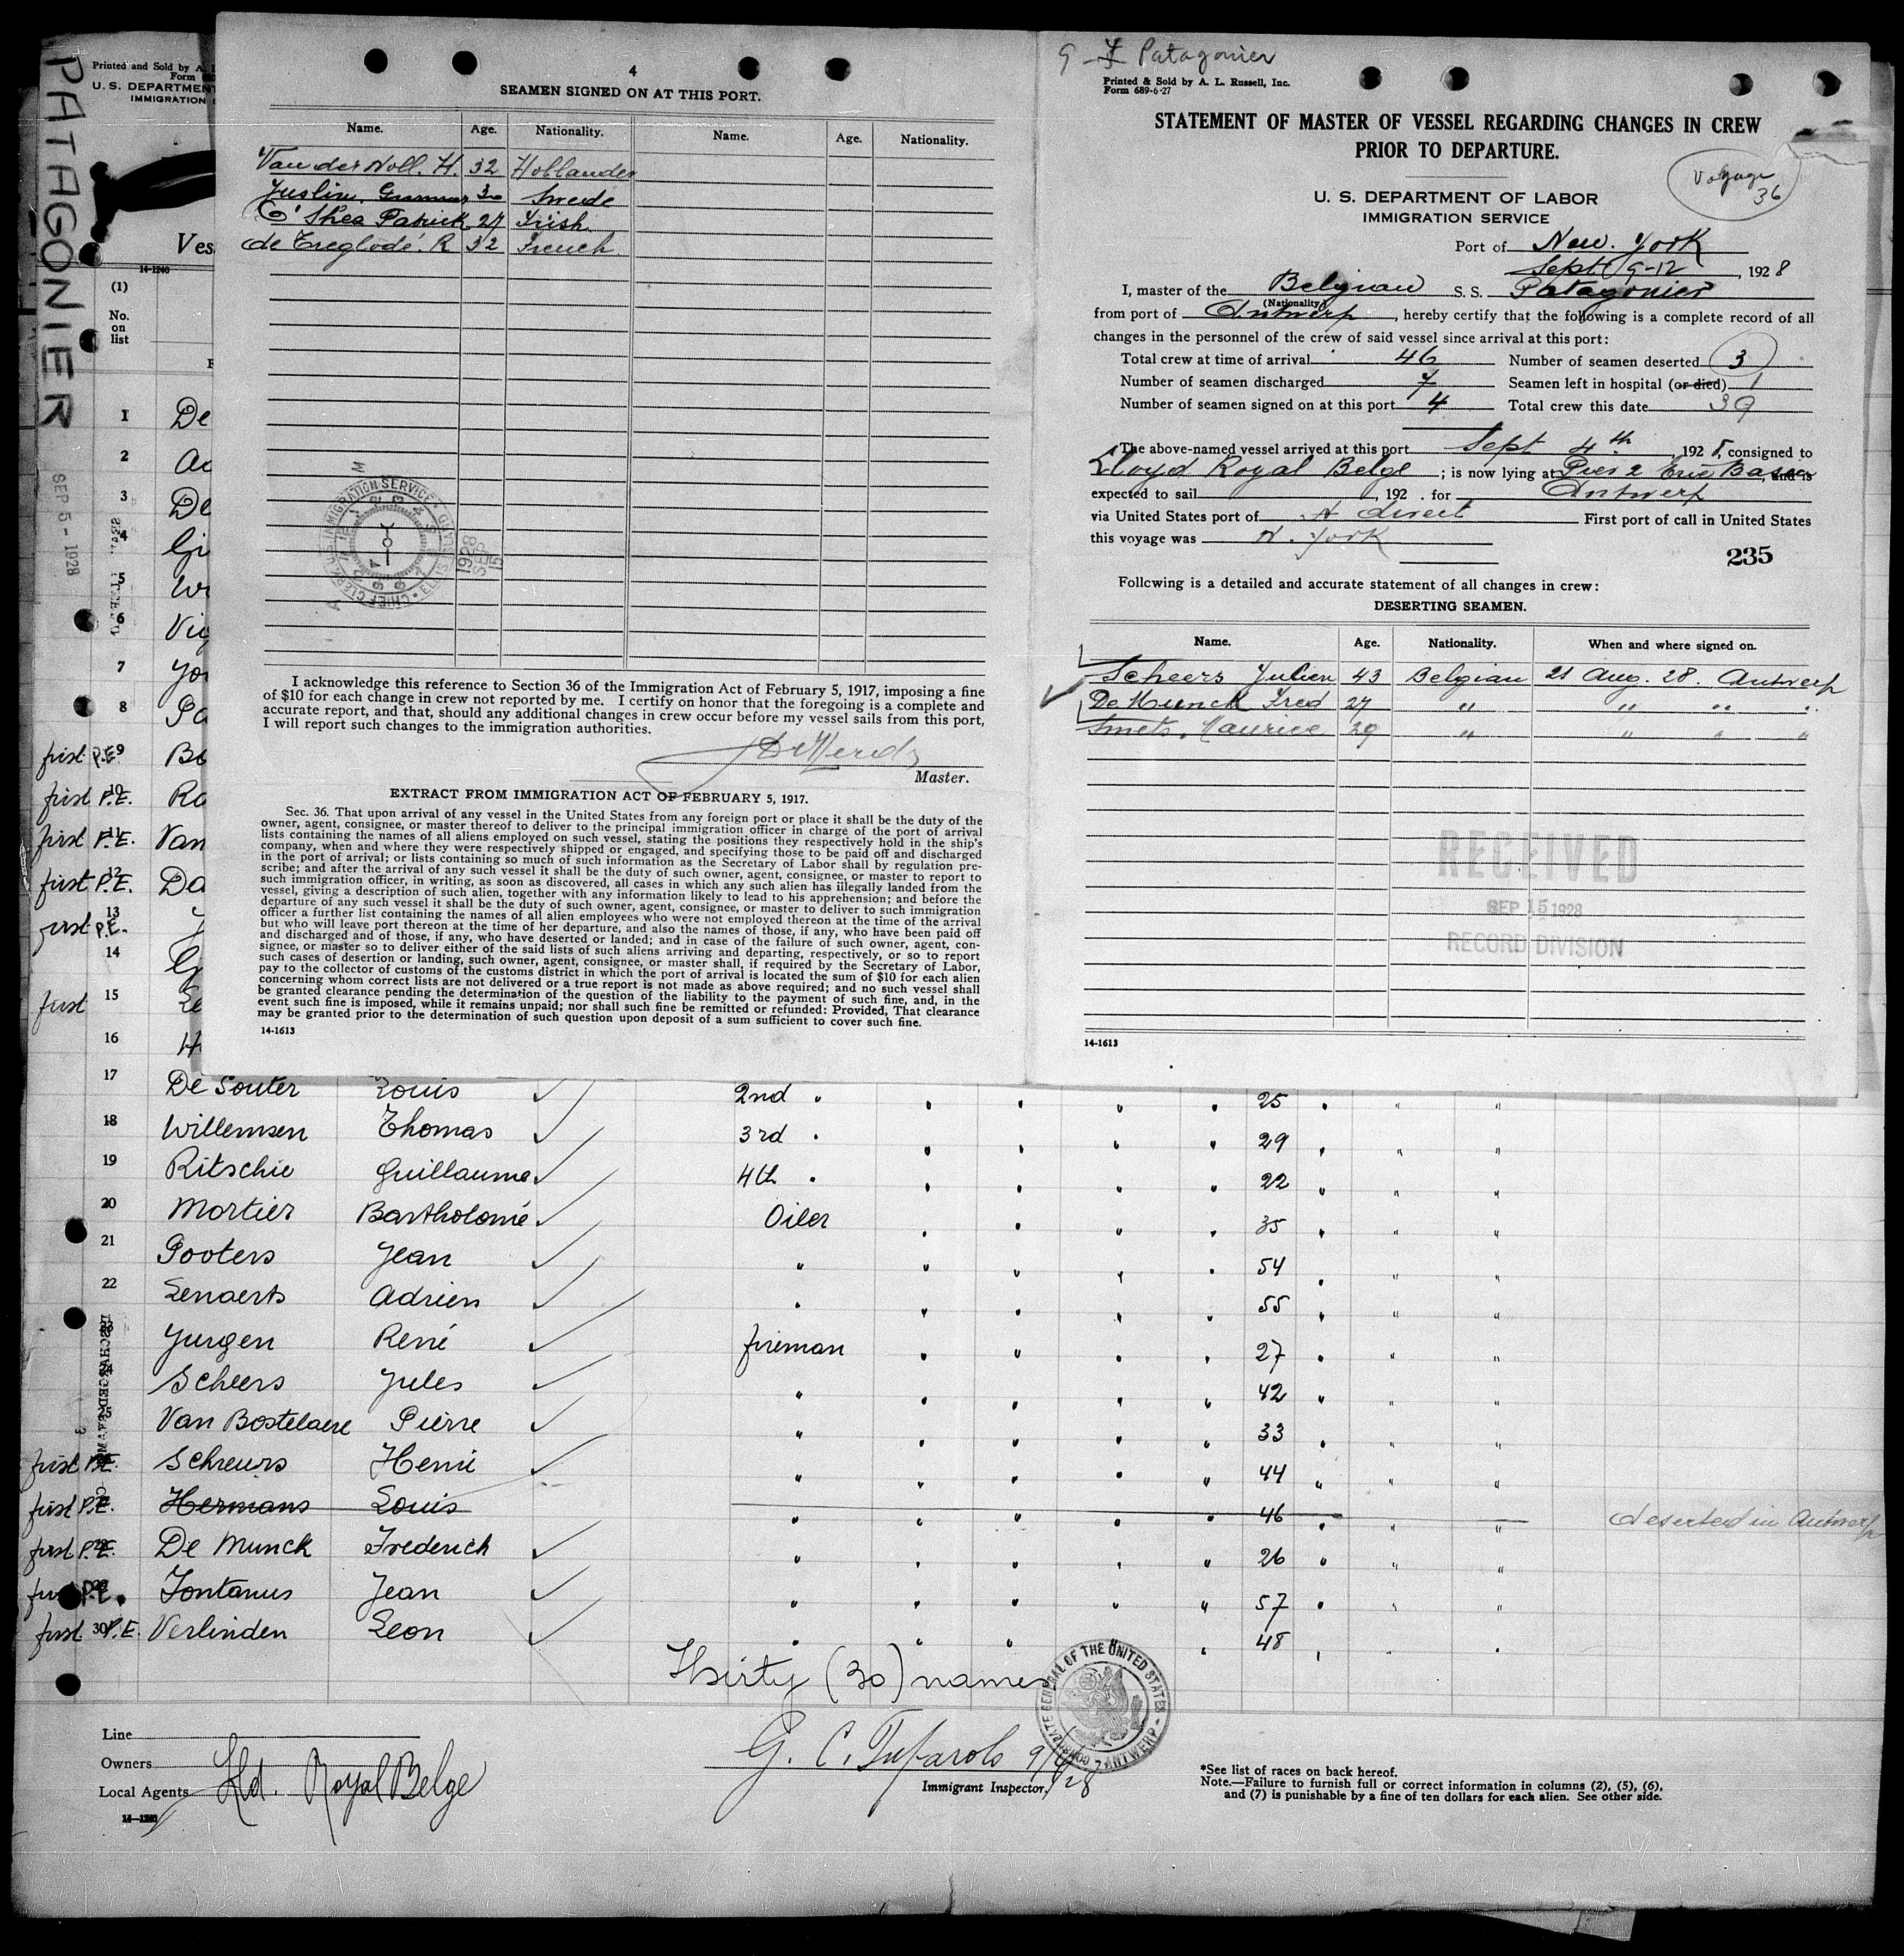 PATAGONIER
SEP 5 - 1928
Printed and Sold by A. L
Form
U. S. DEPARTMENT
IMMIGRATION S
Ves
14-1240
(1)
No.
on
list
1 De
2
3 De
4 Gi
5
6 Vig
7 Yo
8 Pa
first P.E. 9 Bo
first P.E. 10 Ra
first P.E. 11 Van
first P.E. 12 Da
first P.E. 13
14
first 15 Le
16 H
4
SEAMEN SIGNED ON AT THIS PORT.
Name. Age. Nationality. Name. Age. Nationality.
Van der Noll. H. 32 Hollander
Juslin. Gunnar 30 Swede
O'Shea Patrick 27 Irish
de Treglodé. R 32 French
IMMIGRATION SERVICE
CHIEF CLERK
1928
SEP
I acknowledge this reference to Section 36 of the Immigration Act of February 5, 1917, imposing a fine
of $10 for each change in crew not reported by me. I certify on honor that the foregoing is a complete and
accurate report, and that, should any additional changes in crew occur before my vessel sails from this port,
I will report such changes to the immigration authorities.
Master.
EXTRACT FROM IMMIGRATION ACT OF FEBRUARY 5, 1917.
Sec. 36. That upon arrival of any vessel in the United States from any foreign port or place it shall be the duty of the
owner, agent, consignee, or master thereof to deliver to the principal immigration officer in charge of the port of arrival
lists containing the names of all aliens employed on such vessel, stating the positions they respectively hold in the ship's
company, when and where they were respectively shipped or engaged, and specifying those to be paid off and discharged
in the port of arrival; or lists containing so much of such information as the Secretary of Labor shall by regulation pre-
scribe; and after the arrival of any such vessel it shall be the duty of such owner, agent, consignee, or master to report to
such immigration officer, in writing, as soon as discovered, all cases in which any such alien has illegally landed from the
vessel, giving a description of such alien, together with any information likely to lead to his apprehension; and before the
departure of any such vessel it shall be the duty of such owner, agent, consignee, or master to deliver to such immigration
officer a further list containing the names of all alien employees who were not employed thereon at the time of the arrival
but who will leave port thereon at the time of her departure, and also the names of those, if any, who have been paid off
and discharged and of those, if any, who have deserted or landed; and in case of the failure of such owner, agent, con-
signee, or master so to deliver either of the said lists of such aliens arriving and departing, respectively, or so to report
such cases of desertion or landing, such owner, agent, consignee, or master shall, if required by the Secretary of Labor,
pay to the collector of customs of the customs district in which the port of arrival is located the sum of $10 for each alien
concerning whom correct lists are not delivered or a true report is not made as above required; and no such vessel shall
be granted clearance pending the determination of the question of the liability to the payment of such fine, and, in the
event such fine is imposed, while it remains unpaid; nor shall such fine be remitted or refunded: Provided, That clearance
may be granted prior to the determination of such question upon deposit of a sum sufficient to cover such fine.
14-1613
Patagonier
Printed & Sold by A. L. Russell, Inc.
Form 689-6-27
STATEMENT OF MASTER OF VESSEL REGARDING CHANGES IN CREW
PRIOR TO DEPARTURE.
Voyage
36
U. S. DEPARTMENT OF LABOR
IMMIGRATION SERVICE
Port of New. York
Sept 9-12, 1928
I, master of the Belgian S. S. Patagonier
(Nationality)
from port of Antwerp, hereby certify that the following is a complete record of all
changes in the personnel of the crew of said vessel since arrival at this port:
Total crew at time of arrival 46 Number of seamen deserted 3
Number of seamen discharged 7 Seamen left in hospital (or died) 1
Number of seamen signed on at this port 4 Total crew this date 39
The above-named vessel arrived at this port Sept 4th, 1928, consigned to
Lloyd Royal Belge; is now lying at Pier 2 Erie Basin, and is
expected to sail, 192 . for Antwerp
via United States port of direct First port of call in United States
this voyage was N. York
235
Following is a detailed and accurate statement of all changes in crew:
DESERTING SEAMEN.
Name. Age. Nationality. When and where signed on.
Scheers Julien 43 Belgian 21 Aug. 28. Antwerp
De Munck Fred 27 " " " "
Smets. Maurice 29 " " " "
RECEIVED
SEP 15 1928
RECORD DIVISION
14-1613
17 De Souter Louis 2nd " 25
18 Willemsen Thomas 3rd " 29
19 Ritschie Guillaume 4th " 22
20 Mortier Bartholomé Oiler 35
21 Pooters Jean " 54
22 Lenaerts Adrien " 55
Jurgen René fireman 27
Scheers Jules " 42
Van Bostelaere Pierre " 33
first P.E. Schreurs Henri " 44
first P.E. Hermans Louis " 46 deserted in Antwerp
first P.E. De Munck Frederich " 26
first P.E. Fontanus Jean " 57
first 30 P.E. Verlinden Leon " 48
Thirty (30) names
CONSULATE GENERAL OF THE UNITED STATES ANTWERP
Line
Owners
Local Agents Lld. Royal Belge
G. C. 9/4/28
Immigrant Inspector.
*See list of races on back hereof.
Note.—Failure to furnish full or correct information in columns (2), (5), (6),
and (7) is punishable by a fine of ten dollars for each alien. See other side.